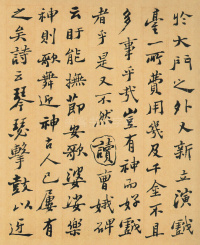 於大門之外又新立演戲
臺一所費用幾及千金不且
多事乎哉豈有神而好戲
者乎是又不然讀曹娥碑
云盱能撫節安歌婆娑樂
神則歌舞迎神古人已屢有
之矣詩云琴瑟擊鼓以迓